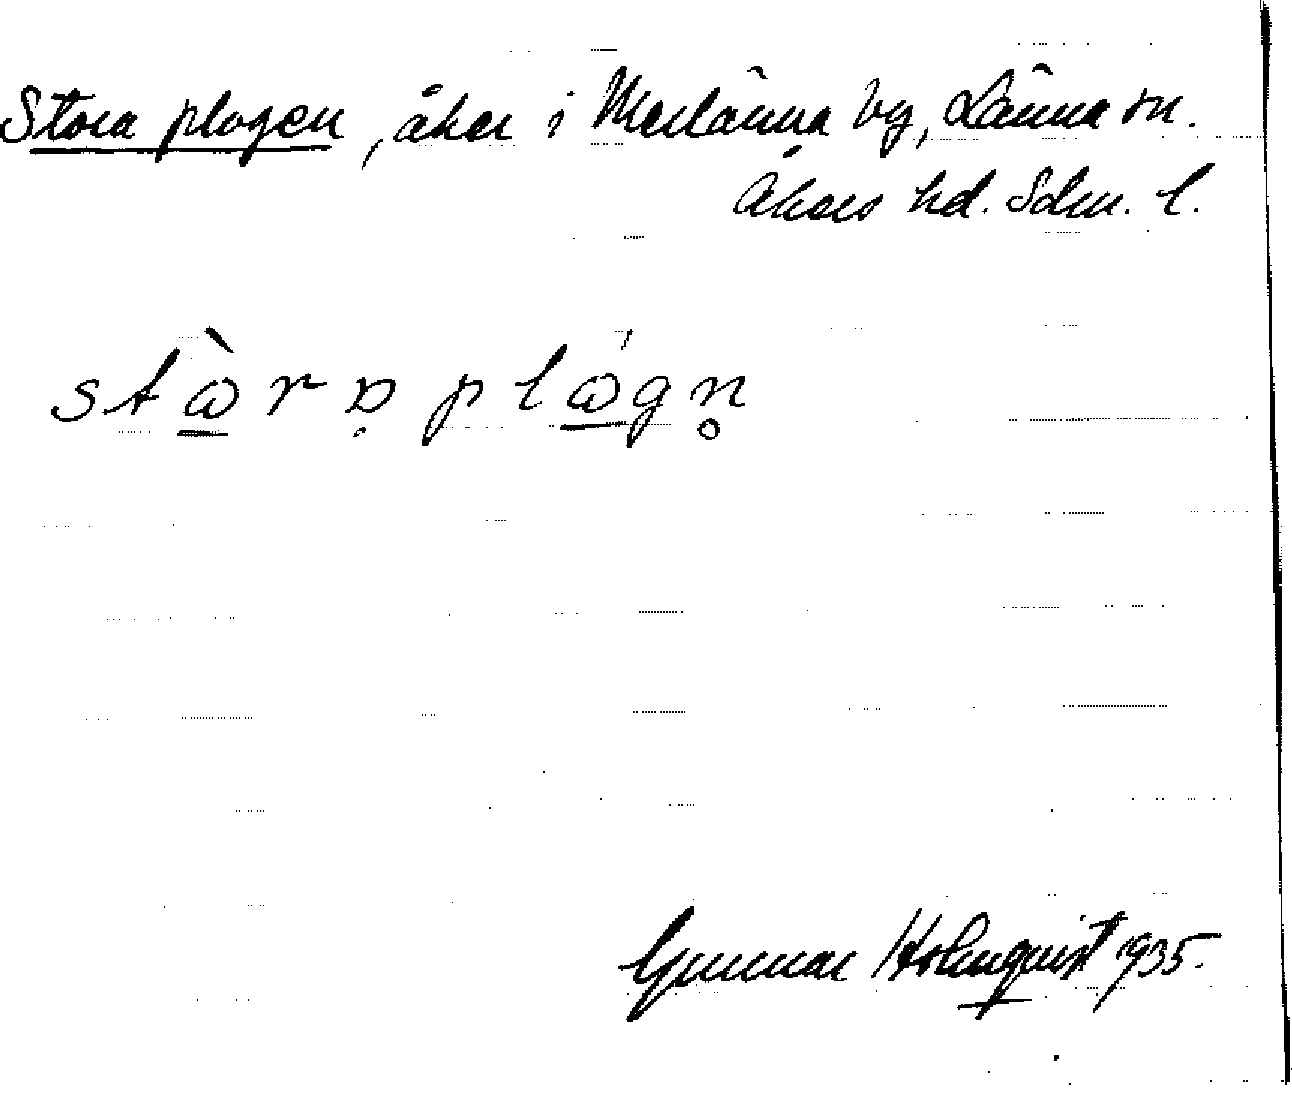 Stora plogen, åker i Merlänna by, Länna sn.
Åkers hd. Sdm. l.
stὼ̱rɒ̣plώ̱gn̥
Gunnar Holmquist 1935.